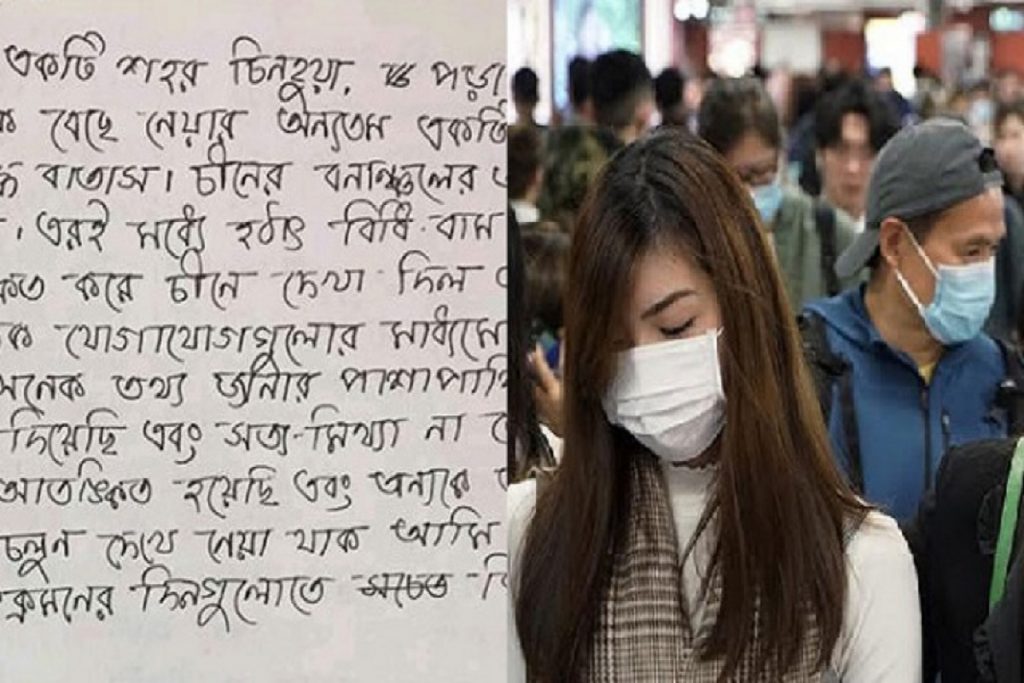 একটি শহর চিনহুয়া, পড়া
বেছে নেয়ার অন্যতম একটি
বাতাস। চীনের বনাঞ্চলের
। এরই মধ্যে হঠাৎ বিধি-বাম
করে চীনে দেখা দিল
যোগাযোগগুলোর মাধ্যমে
অনেক তথ্য জানার পাশাপাশি
দিয়েছি এবং সত্য-মিথ্যা না
আতঙ্কিত হয়েছি এবং অন্যকে
চলুন দেখে নেয়া যাক আমি
ক্রমনের দিনগুলোতে